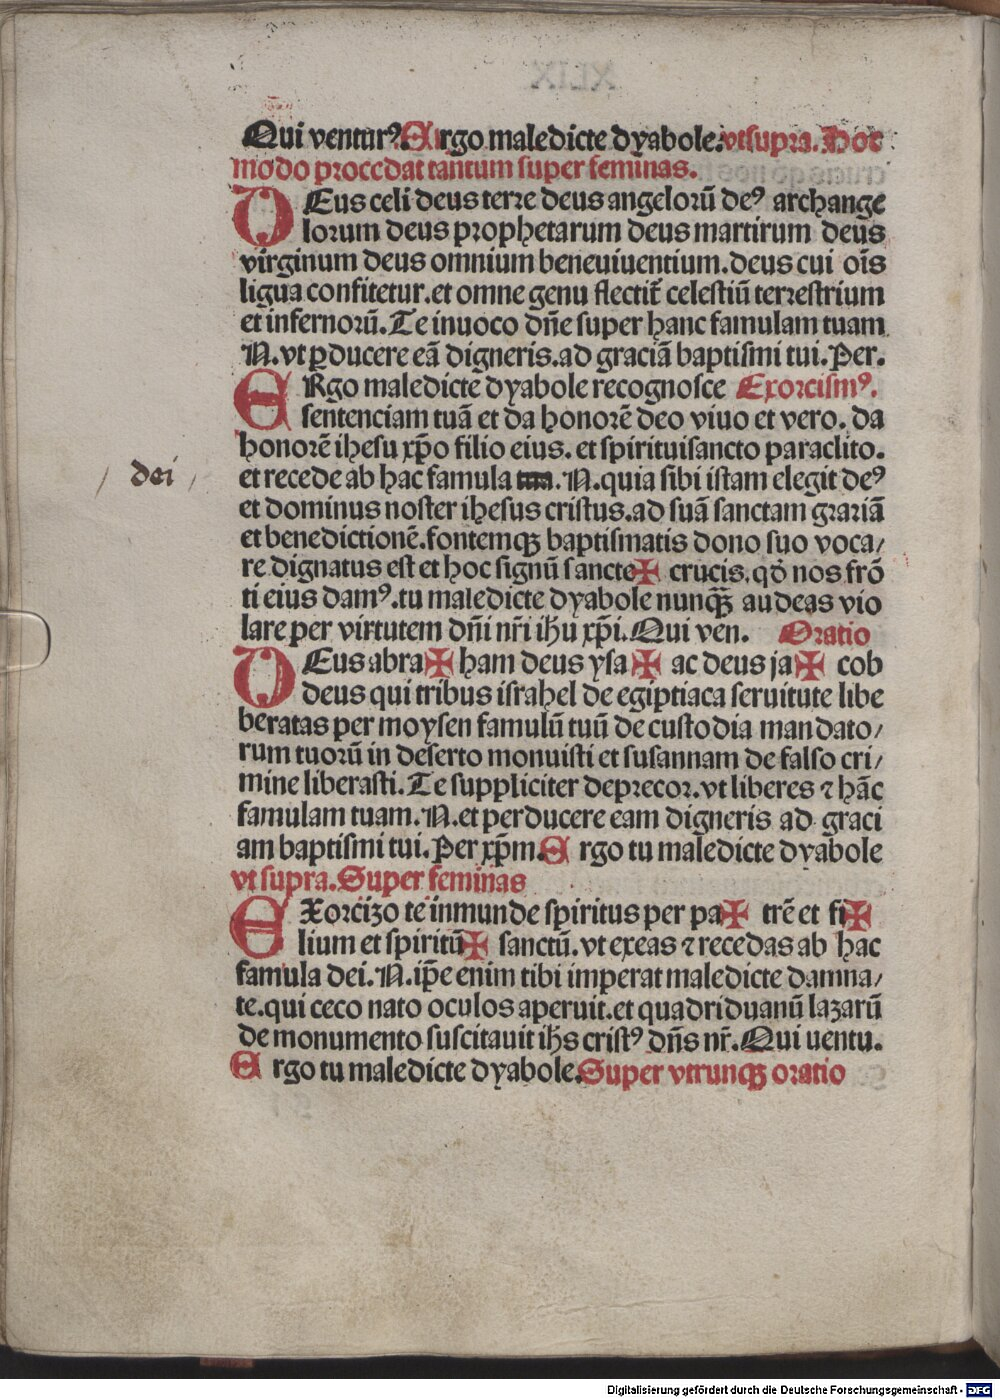 Qui ventur⁹. Ergo maledicte dyabole. vt supra. Hoc
modo procedat tantum super feminas.
DEus celi deus terre deus angeloru̅ de⁹ archange
lorum deus prophetarum deus martirum deus
virginum deus omnium beneuiuentium. deus cui oi̅s
ligua confitetur. et omne genu flectit̅ celestiu̅ terrestrium
et infernoru̅. Te inuoco dn̅e super hanc famulam tuam
N. vt ꝑducere ea̅ digneris. ad gracia̅ baptismi tui. Per.
ERgo maledicte dyabole recognosce Exorcism⁹.
sentenciam tua̅ et da honore̅ deo viuo et vero. da
honore̅ ihesu xp̅o filio eius. et spirituisancto paraclito.
et recede ab hac famula tua. N. quia sibi istam elegit de⁹
/ dei /
et dominus noster ihesus cristus. ad sua̅ sanctam graria̅
et benedictione̅. fontemqꝫ baptismatis dono suo voca/
re dignatus est et hoc signu̅ sancte ✠ crucis. qd̅ nos fro̅
ti eius dam⁹. tu maledicte dyabole nunqꝫ̅ audeas vio
lare per virtutem dn̅i nr̅i ih̅u xp̅i. Qui ven. Oratio
DEus abra ✠ ham deus ysa ✠ ac deus ja ✠ cob
deus qui tribus israhel de egiptiaca seruitute libe
beratas per moysen famulu̅ tuu̅ de custodia mandato/
rum tuoru̅ in deserto monuisti et susannam de falso cri/
mine liberasti. Te suppliciter deprecor. vt liberes ⁊ ha̅c
famulam tuam. N. et perducere eam digneris ad graci
am baptismi tui. Per xp̅m. Ergo tu maledicte dyabole
vt supra. Super feminas
EXorcizo te inmunde spiritus per pa ✠ tre̅ et fi ✠
lium et spiritu̅ ✠ sanctu̅. vt exeas ⁊ recedas ab hac
famula dei. N. ip̅e enim tibi imperat maledicte damna/
te. qui ceco nato oculos aperuit. et quadriduanu̅ lazaru̅
de monumento suscitauit ih̅s crist⁹ dn̅s nr̅. Qui uentu.
Ergo tu maledicte dyabole. Super vtrunqꝫ oratio
Digitalisierung gefördert durch die Deutsche Forschungsgemeinschaft - DFG